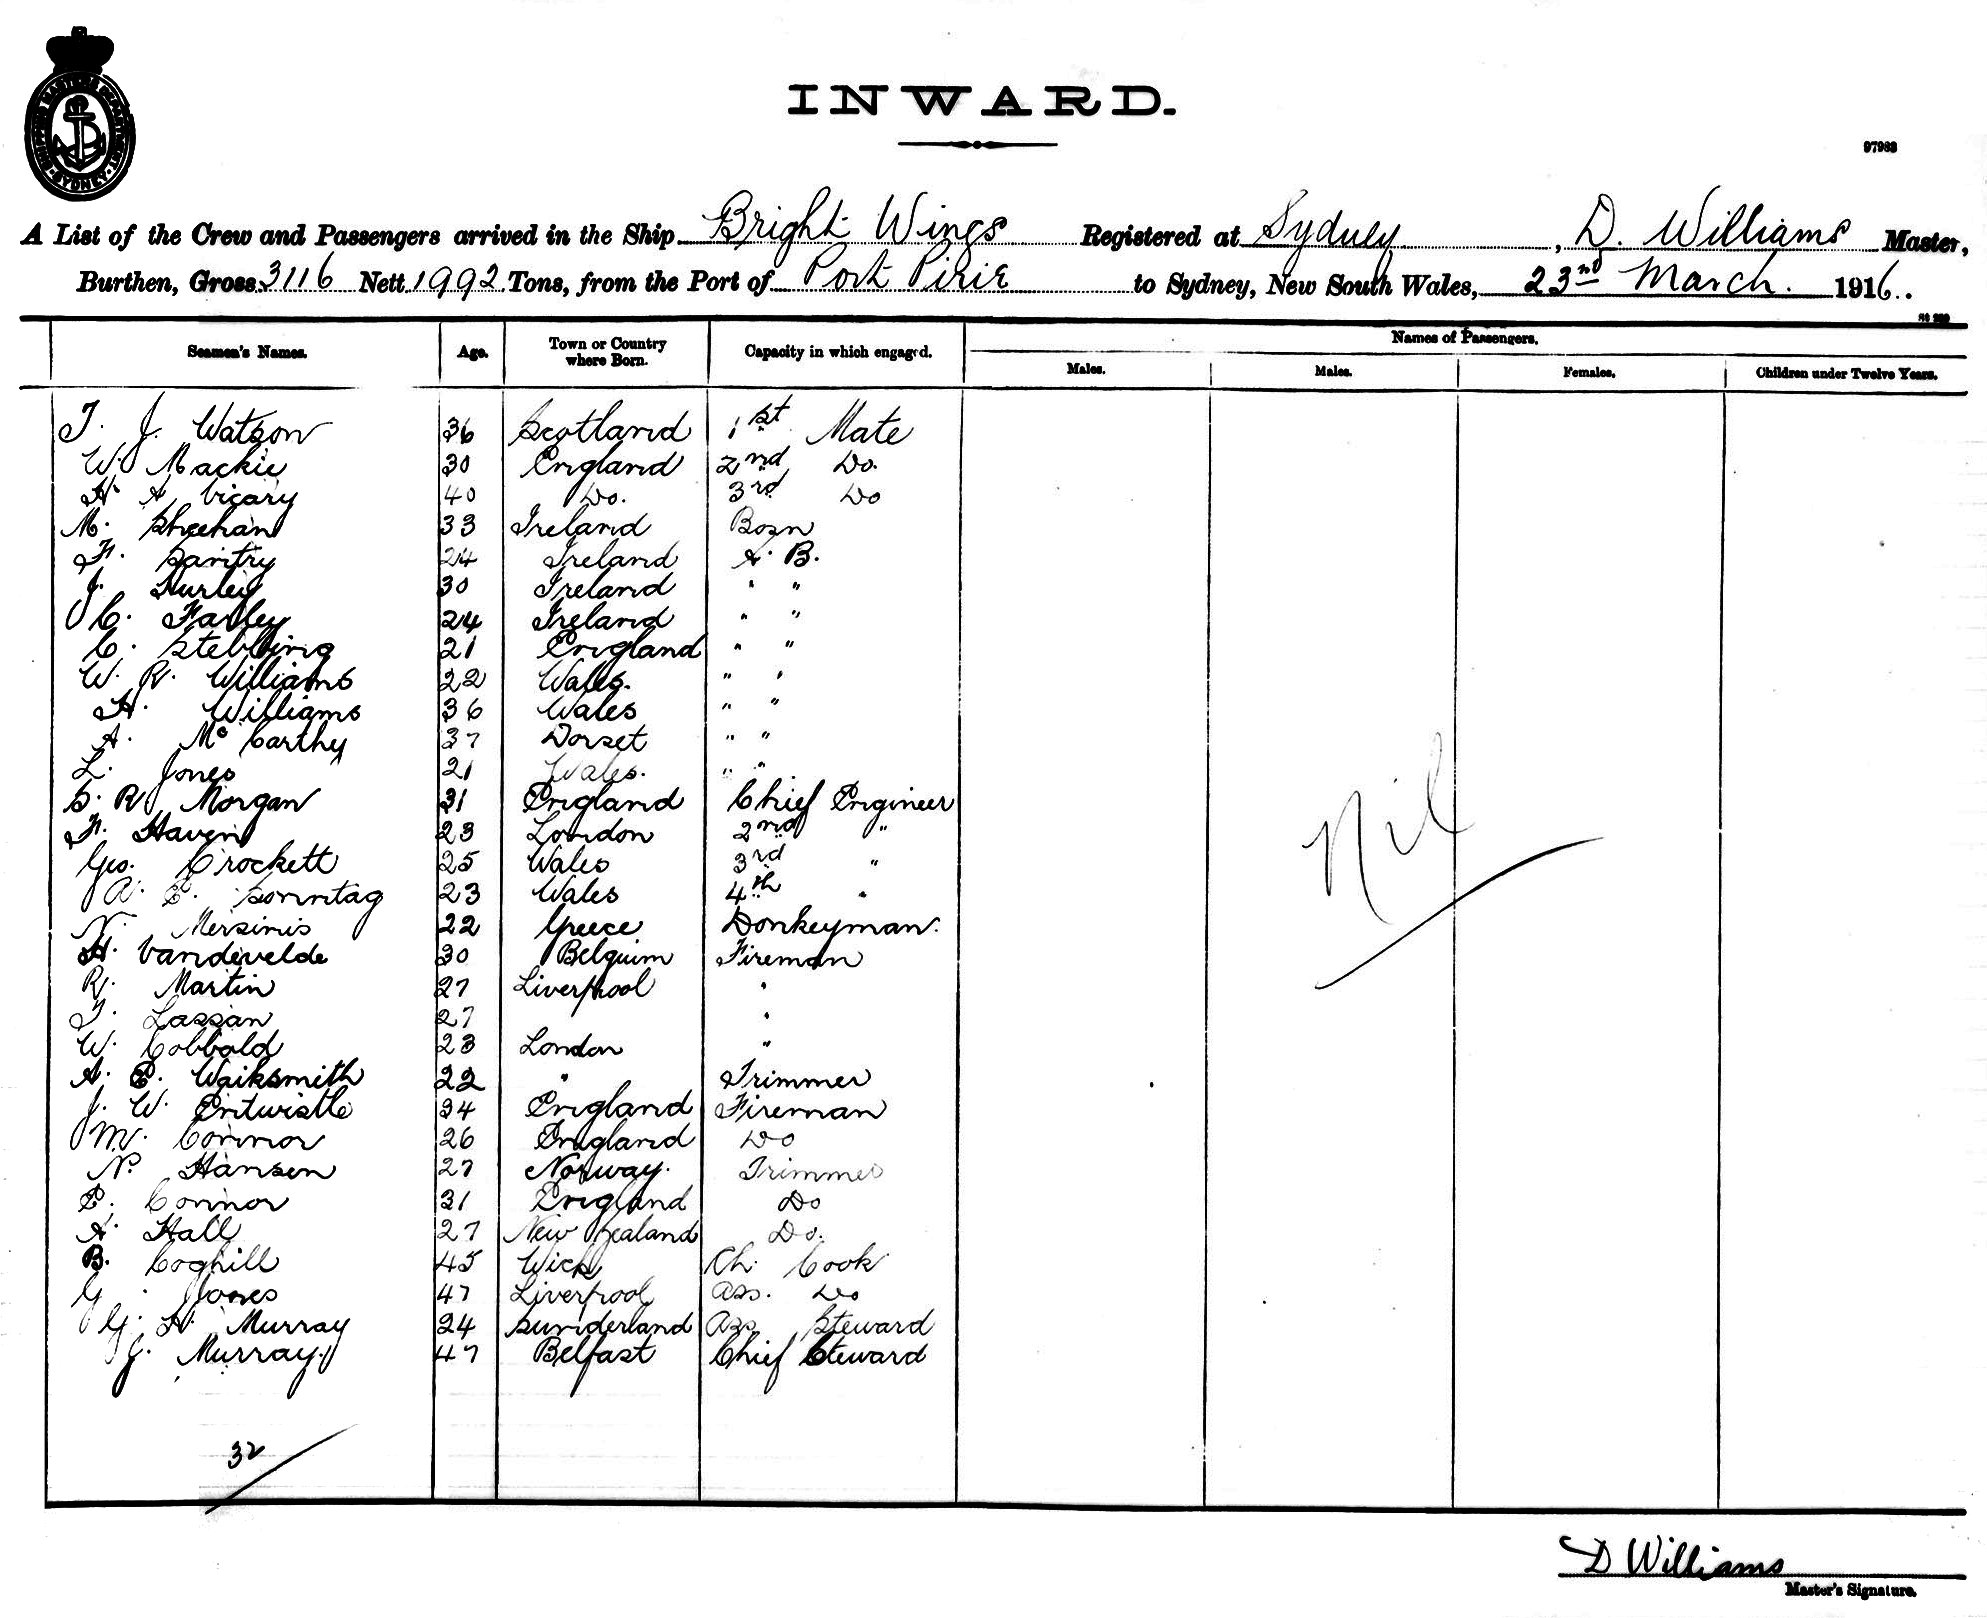 SHIPPING MASTER'S DEPARTMENT SYDNEY
INWARD.
97983
A List of the Crew and Passengers arrived in the Ship Bright Wings Registered at Sydney, D. Williams Master,
Burthen, Gross 3116 Nett 1992 Tons, from the Port of Port Pirie to Sydney, New South Wales, 23rd March. 1916.
Seamen's Names. Age. Town or Country where Born. Capacity in which engaged. Names of Passengers.
Males. Males. Females. Children under Twelve Years.
T. J. Watson 36 Scotland 1st Mate
W. Mackie 30 England 2nd Do.
H. A Vicary 40 Do. 3rd Do
M. Sheehan 33 Ireland Bosn
F. Santry 24 Ireland A. B.
J. Hurley 30 Ireland " "
C. Farley 24 Ireland " "
C. Stebbing 21 England " "
W. R. Williams 22 Wales. " "
H. Williams 36 Wales " "
A. McCarthy 37 Dorset " "
L. Jones 21 Wales. " "
S. R. Morgan 31 England Chief Engineer
F. Haven 23 London 2nd "
Geo. Crockett 25 Wales 3rd "
A. E. Sonntag 23 Wales 4th "
N. Mersinis 22 Greece Donkeyman.
H. Vandevelde 30 Belguim Fireman
R. Martin 27 Liverpool "
T. Lassan 27 "
W. Cobbold 23 London "
A. E. Waiksmith 22 " Trimmer
J. W. Entwistle 34 England Fireman
M. Connor 26 England Do
N. Hansen 27 Norway. Trimmer
P. Connor 31 England Do
A. Hall 27 New Zealand Do.
B. Coghill 45 Wick Ch. Cook
G. Jones 47 Liverpool Ass. Do
G. H. Murray 24 Sunderland Ass Steward
J. Murray. 47 Belfast Chief Steward
Nil
32
D Williams
Master's Signature.